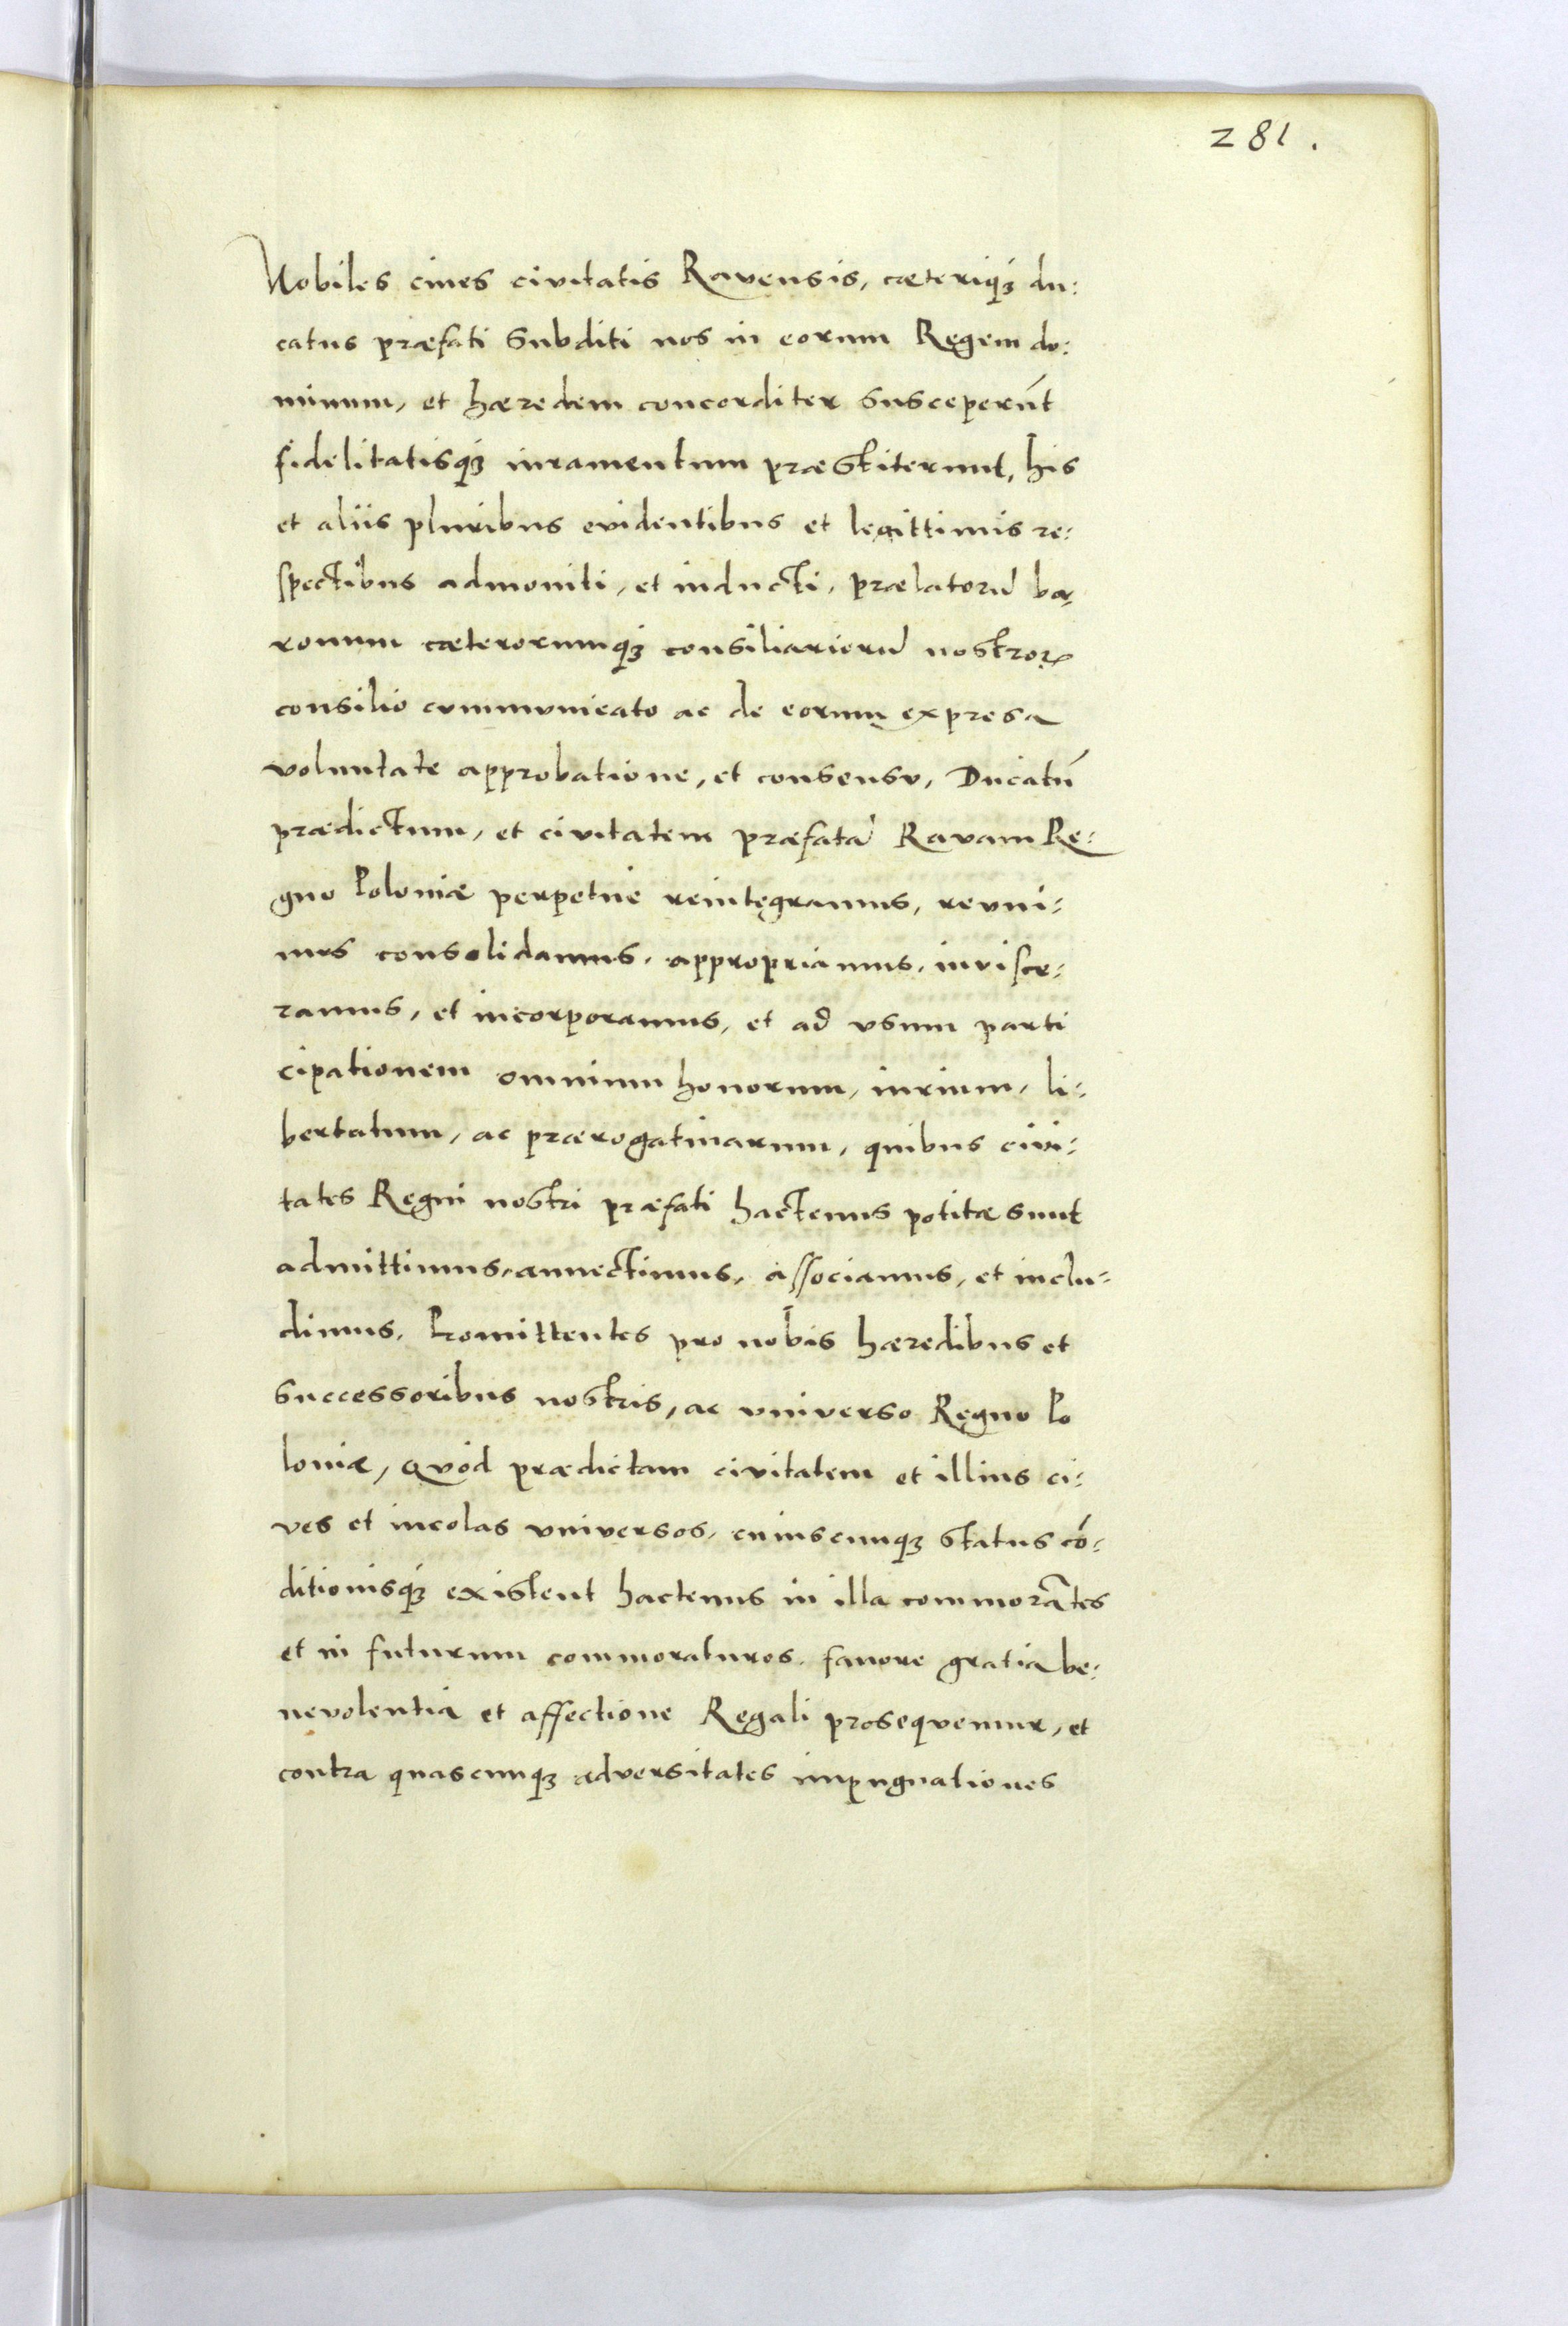 281.
Nobiles ciues civitatis Ravensis, cæteriqꝫ du:
catus præfati subditi nos in eorum Regem do:
minum, et hæredem concorditer susceperūt
fidelitatisqꝫ iuramentum præstiterunt, his
et aliis pluribus evidentibus et legittimis re:
spectibus admoniti, et inducti, prælatorū ba,
ronum cæterorumqꝫ consiliariorū nostroꝝ
consilio communicato ac de eorum expresa
voluntate approbatione, et consensu, Ducatū
prædictum, et civitatem præfatā Ravam Re:
gno Poloniæ perpetue reintegramus, revni:
mus consolidamus, appropriamus, invisce:
ramus, et incorporamus, et ad vsum parti
cipationem omnium honorum, iurium, li:
bertatum, ac prærogatiuarum, quibus civi:
tates Regni nostri præfati hactenus potitæ sunt
admittimus, annectimus, associamus, et inclu:
dimus. Promittentes pro nobis hæredibus et
successoribus nostris, ac vniverso Regno Po
loniæ, Qvod prædictam civitatem et illius ci:
ves et incolas vniversos, cuiuscunqꝫ status cō:
ditionisqꝫ existent hactenus in illa commorātes
et in futurum commoraturos, fauore gratia be:
nevolentia et affectione Regali proseqvemur, et
contra quascunqꝫ adversitates impugnationes